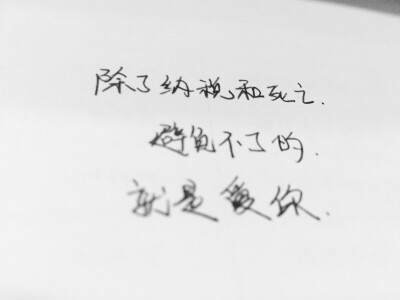 除了纳税和死亡.
避免不了的.
就是爱你.